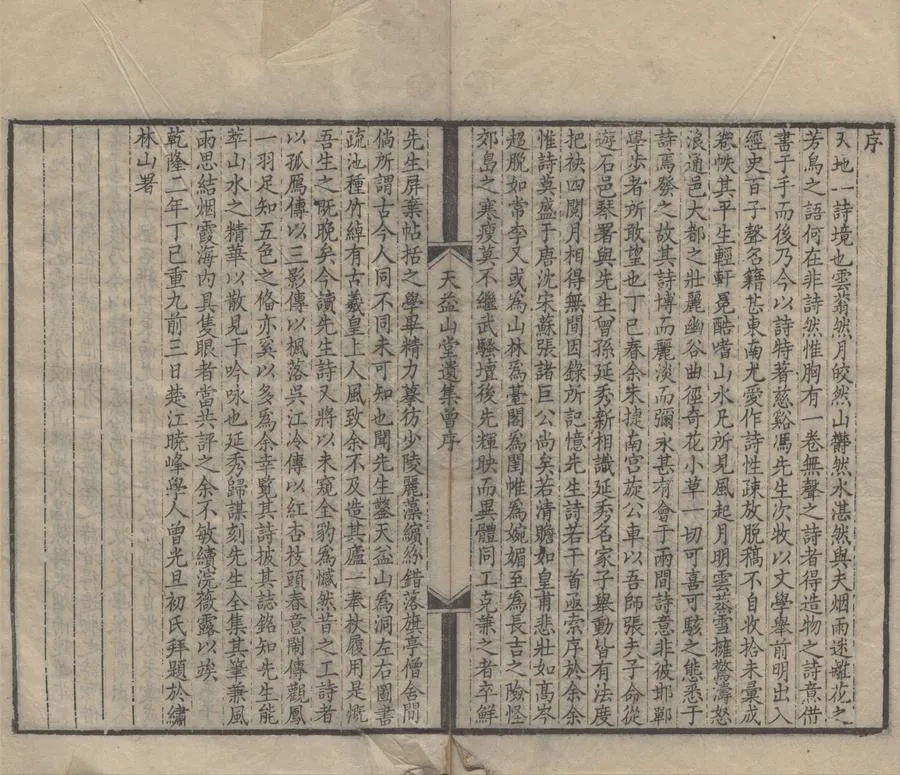 序
天地一詩境也雲蓊然月皎然山欝然水湛然與夫烟雨迷離花之
芳鳥之語何在非詩然惟胸有一卷無聲之詩者得造物之詩意借
書于手而後乃今以詩特著慈谿馮先生次牧以文學舉前明出入
經史百子聲名籍甚東南尤愛作詩性疎放脫稿不自收拾未彙成
卷帙其平生輕軒冕酷嗜山水凡所見風起月明雲蒸雪擁驚濤怒
浪通邑大都之壯麗幽谷曲徑奇花小草一切可喜可駭之態悉于
詩焉發之故其詩博而麗淡而彌永甚有會于兩間詩意非彼邯鄲
學步者所敢望也丁巳春余朱捷南宮旋公車以吾師張夫子命從
遊石邑琴署與先生曾孫延秀新相識延秀名家子舉動皆有法度
把袂四閱月相得無間因錄所記憶先生詩若干首亟索序於余余
惟詩莫盛于唐沈宋蘇張諸巨公尚矣若清贍如皇甫悲壯如高岑
超脫如常李又或為山林為臺閣為閨帷為婉媚至為長吉之險怪
郊島之寒瘦莫不繼武騷壇後先輝映而異體同工克兼之者卒鮮
天益山堂遺集曾序
先生屏棄帖括之學畢精力摹彷少陵麗藻繽紛錯落旗亭僧舍間
倘所謂古今人同不同未可知也聞先生鑿天益山為洞左右圖書
疏池種竹綽有古羲皇上人風致余不及造其廬一奉杖履用是慨
吾生之既晚矣今讀先生詩又將以未窺全豹為憾然昔之工詩者
以孤鴈傳以三影傳以楓落吳江冷傳以紅杏枝頭春意閙傳觀鳳
一羽足知五色之俻亦奚以多為余幸覽其詩披其誌銘知先生能
萃山水之精華以散見于吟咏也延秀歸謀刻先生全集其筆兼風
雨思結烟霞海內具隻眼者當共評之余不敏續浣薇露以竢
乾隆二年丁巳重九前三日楚江曉峰學人曾光旦初氏拜題於繡
林山署